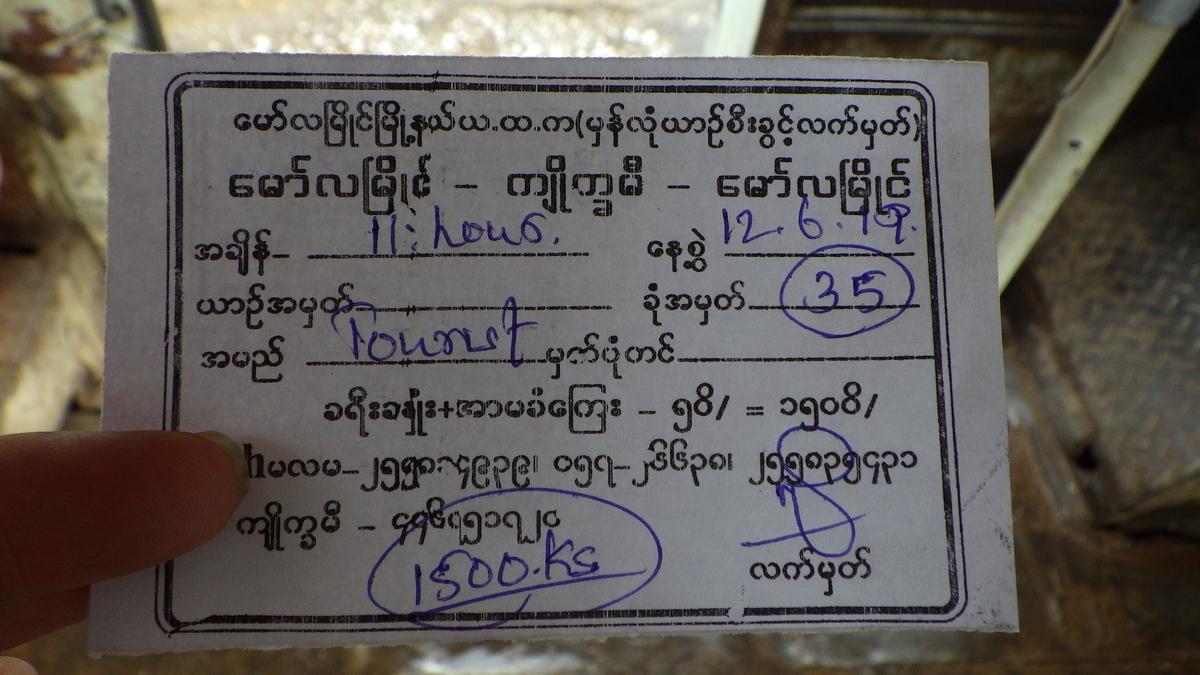 မော်လမြိုင်မြို့နယ်ယ.ထ.က(မှန်လုံယာဉ်စီးခွင့်လက်မှတ်)
မော်လမြိုင် - ကျိုက္ခမီ - မော်လမြိုင်
အချိန် 11: hous. နေ့စွဲ 12.6.19.
ယာဉ်အမှတ် ခုံအမှတ် 35
အမည် Tourist မှတ်ပုံတင်
ခရီးခနှုံး+အာမခံကြေး - ၅ဝိ/ = ၁၅၀ဝိ/
မလမ
ကျိုက္ခမီ -
1500.Ks
လက်မှတ်